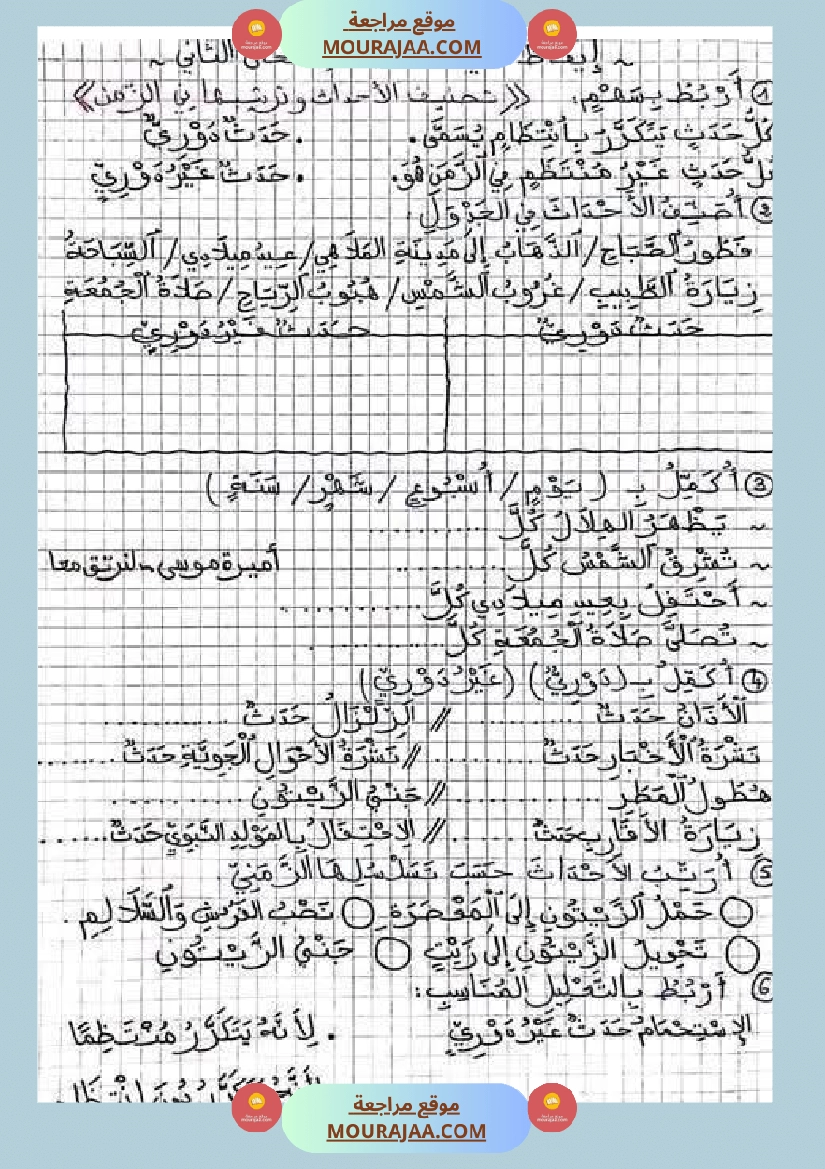 موقع مراجعة
MOURAJAA.COM
① أَرْبُطُ بِسَهْمٍ: ⟪ تصنيف الأحداث وترتيبها في الزمن ⟫
كُلُّ حَدَثٍ يَتَكَرَّرُ بِانْتِظَامٍ يُسَمَّى . . حَدَثٌ دَوْرِيٌّ
كُلُّ حَدَثٍ غَيْرُ مُنْتَظِمٍ فِي الزَّمَنِ هُوَ . . حَدَثٌ غَيْرُ دَوْرِيٍّ
② أُصَنِّفُ الأَحْدَاثَ فِي الجَدْوَلِ :
فَطُورُ الصَّبَاحِ / الذَّهَابُ إِلَى مَدِينَةِ المَلَاهِي / عِيدُ مِيلَادِي / السِّبَاحَةُ
زِيَارَةُ الطَّبِيبِ / غُرُوبُ الشَّمْسِ / هُبُوبُ الرِّيَاحِ / صَلَاةُ الْجُمُعَةِ
حَدَثٌ دَوْرِيٌّ حَدَثٌ غَيْرُ دَوْرِيٍّ
③ أُكَمِّلُ بِـ ( يَوْمٍ / أُسْبُوعٍ / شَهْرٍ / سَنَةٍ )
~ يَظْهَرُ الهِلَالُ كُلَّ ............
~ تُشْرِقُ الشَّمْسُ كُلَّ ............ أميرة موسى ~ لنرتق معا
~ أَحْتَفِلُ بِعِيدِ مِيلَادِي كُلَّ ............
~ تُصَلَّى صَلَاةُ الْجُمُعَةِ كُلَّ ............
④ أُكَمِّلُ بِـ (دَوْرِيٌّ) (غَيْرُ دَوْرِيٍّ)
الْأَذَانُ حَدَثٌ ............ // الزِّلْزَالُ حَدَثٌ ............
نَشْرَةُ الْأَخْبَارِ حَدَثٌ ............ // نَشْرَةُ الأَحْوَالِ الْجَوِيَّةِ حَدَثٌ ............
هُطُولُ الْمَطَرِ ............ // جَنْيُ الزَّيْتُونِ ............
زِيَارَةُ الأَقَارِبِ حَدَثٌ ............ // الِاحْتِفَالُ بِالمَوْلِدِ النَّبَوِيِّ حَدَثٌ ............
⑤ أُرَتِّبُ الأَحْدَاثَ حَسَبَ تَسَلْسُلِهَا الزَّمَنِيِّ .
◯ حَمْلُ الزَّيْتُونِ إِلَى الْمَعْصَرَةِ ◯ نَصْبُ الفُرُشِ وَالسَّلَالِمِ .
◯ تَحْوِيلُ الزَّيْتُونِ إِلَى زَيْتٍ ◯ جَنْيُ الزَّيْتُونِ
⑥ أَرْبُطُ بِالتَّعْلِيلِ المُنَاسِبِ :
الِاسْتِحْمَامُ حَدَثٌ غَيْرُ دَوْرِيٍّ . لِأَنَّهُ يَتَكَرَّرُ مُنْتَظِمًا
موقع مراجعة
MOURAJAA.COM